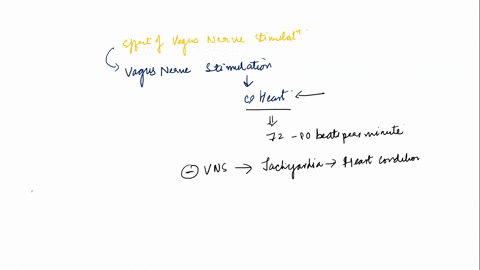 Effect of Vagus Nerve Stimulatn
Vagus Nerve Stimulation
↓
Heart ←
⇓
72 - 80 beats per minute
⊖ VNS → Tachycardia → Heart condition